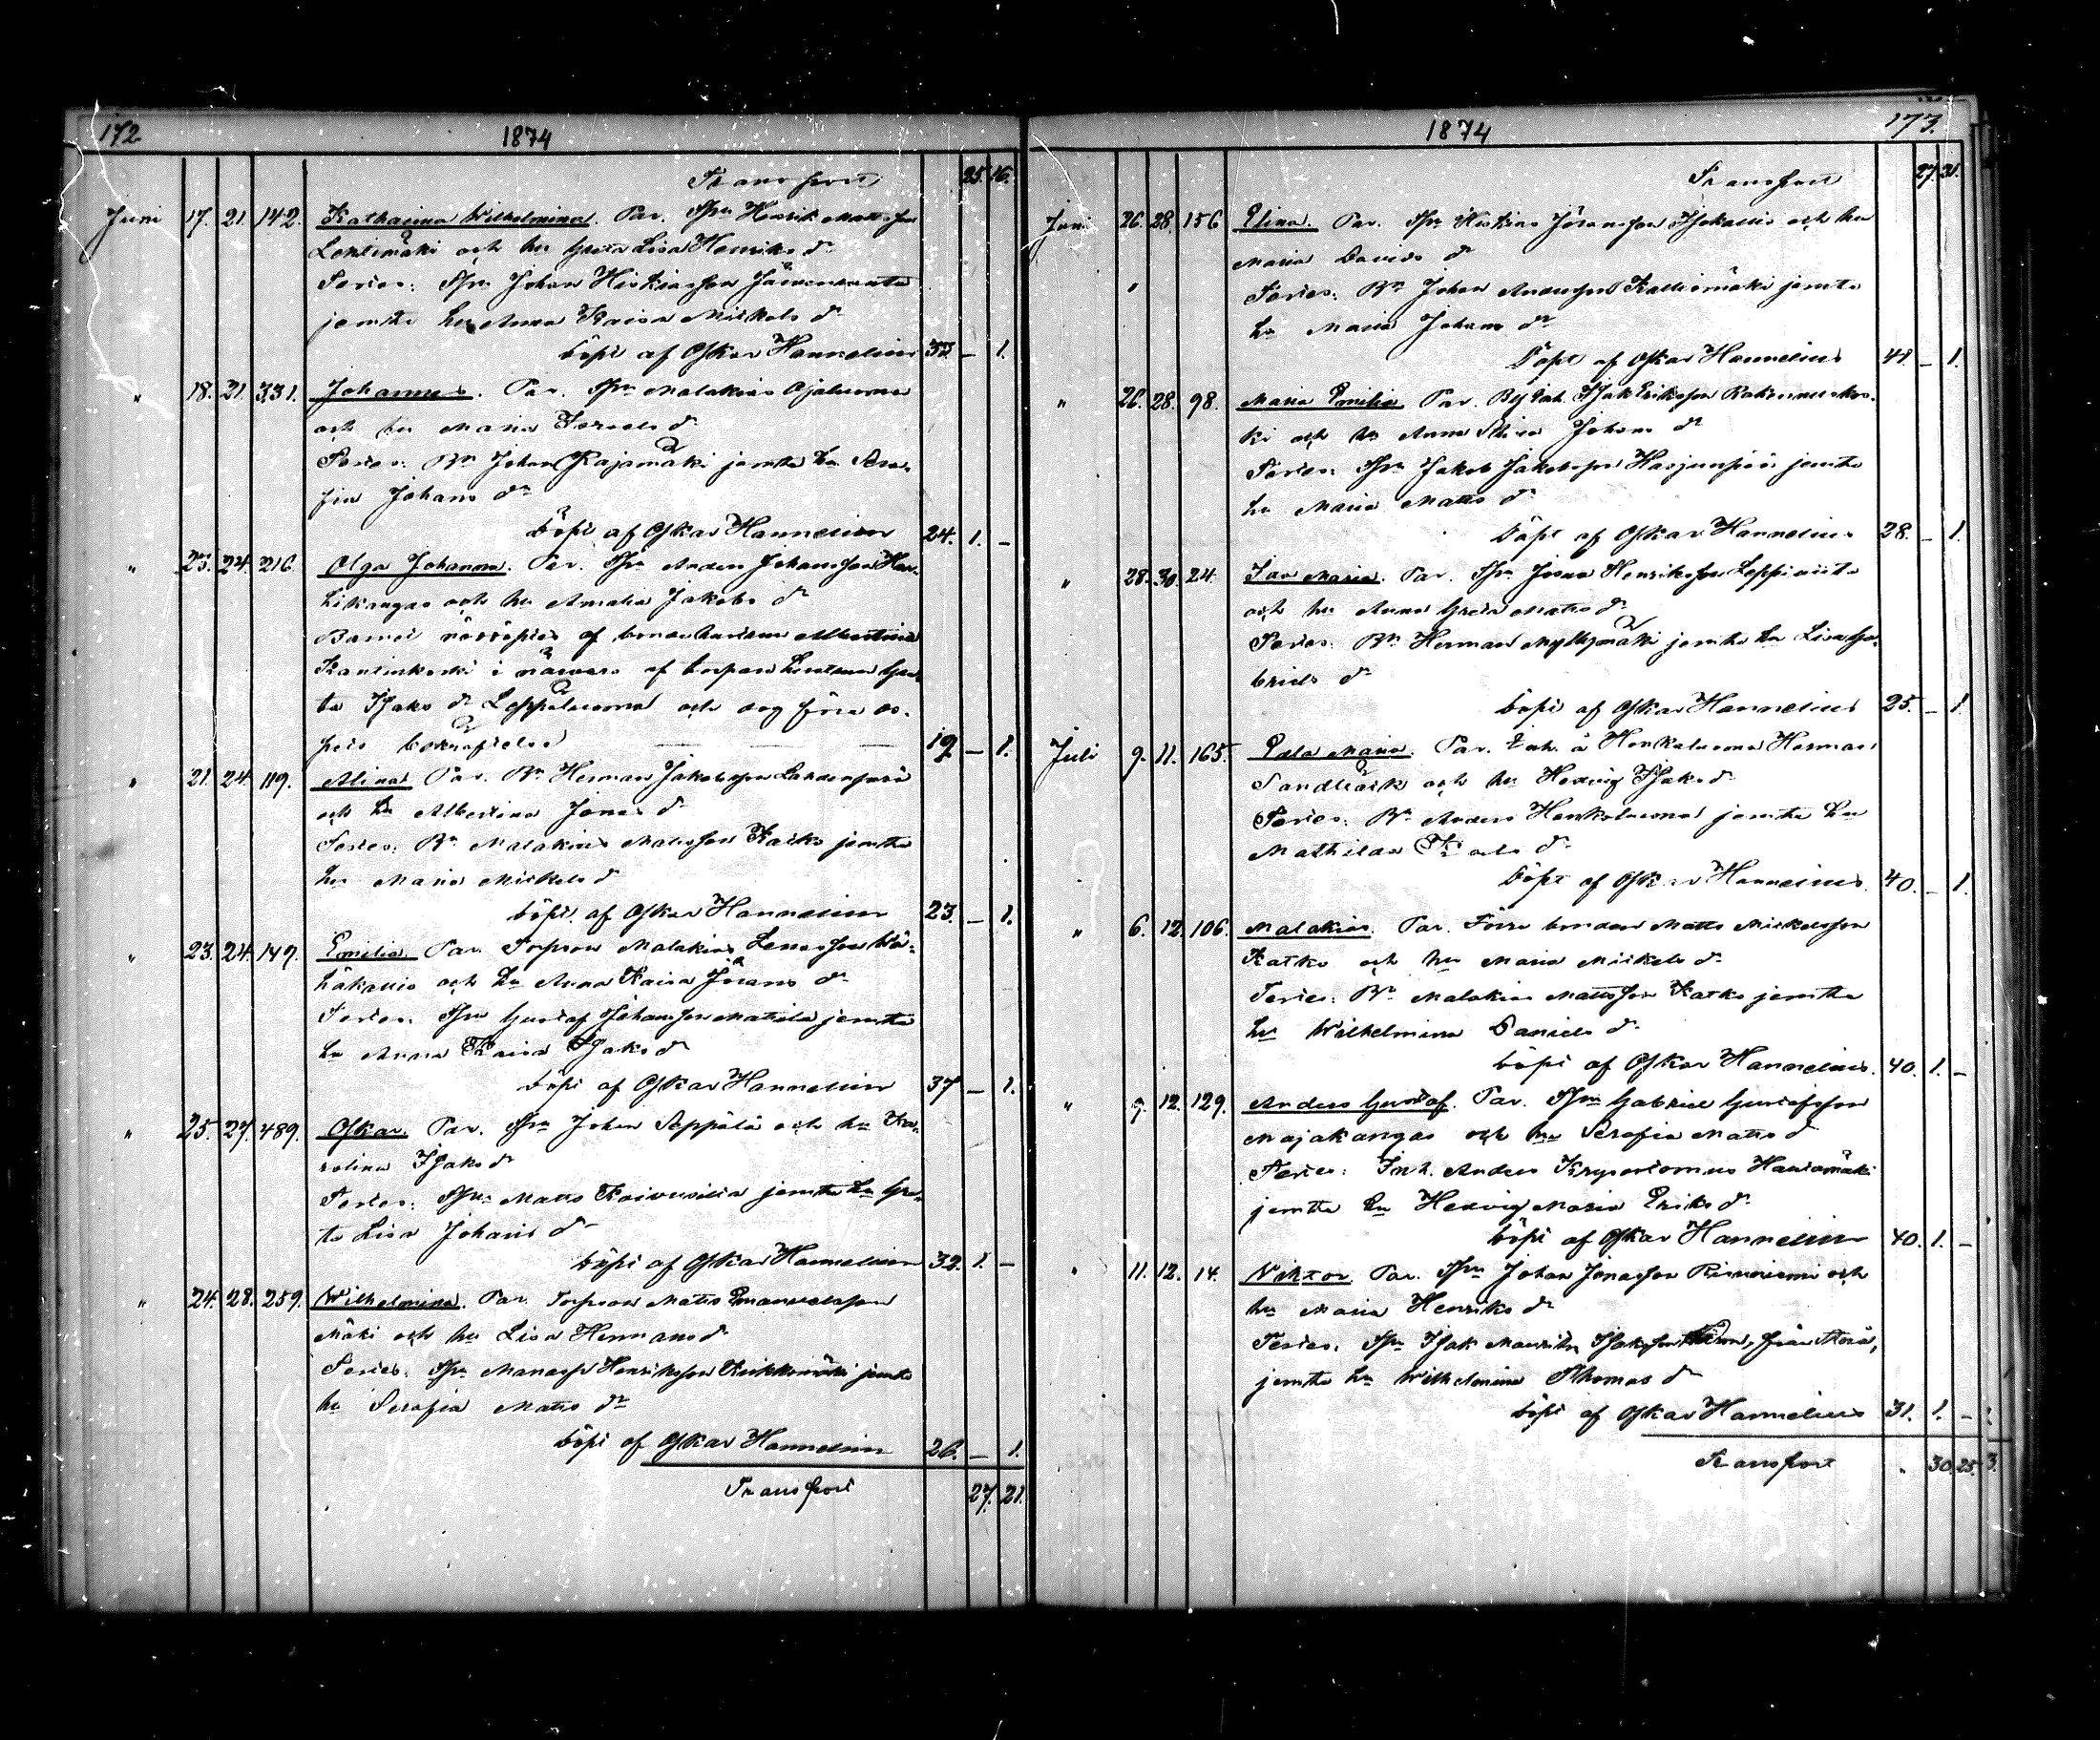 172
1874
Transport 25. 16.
Juni 17. 21. 142. Katharina Wilhelmina. Par. Tpr Henrik Mattsson
Lehtimäki och hu Greta Lisa Henriks dr
Testes: Tpr Johan Hiskiasson Järvenranta
jemte hu Anna Kaisa Mickels dr
Döpt af Oskar Hannelius 32 — 1.
" 18. 21. 331. Johannes. Par. Tpr Malakias Ojaluoma
och hu Maria Israels dr
Testes: Bn Johan Rajamäki jemte hu Sera-
fia Johans dr
Döpt af Oskar Hannelius 24. 1. —
" 23. 24. 216. Olga Johanna. Par. Tpr Anders Johansson Har-
hikangas och hu Amalia Jakobs dr
Barnet nöddöptes af bondehustrun Albertina
Kantinkoski i närvaro af torpare hustrun Gre-
ta Isaks dr Leppäluoma och dog före do-
pets bekräftelse 19 — 1.
" 21. 24. 119. Alina. Par. Bn Herman Jakobsson
och hu Albertina Jonas dr
Testes: Bn Malakias Matsson Katko jemte
hu Maria Mickels dr
Döpt af Oskar Hannelius 23. — 1.
" 23. 24. 149. Emilia. Par. Torparen Malakias
och hu Anna Kaisa Jörans dr
Testes: Tpr Gustaf Johansson Mattila jemte
hu Anna Kaisa Isaks dr
Döpt af Oskar Hannelius 37 — 1.
" 25. 27. 489. Oskar. Par. Tpr Johan Seppälä och hu Ka-
rolina Isaks dr
Testes: Tpr Matts Koivusilta jemte hu Gre-
ta Lisa Johans dr
Döpt af Oskar Hannelius 32. 1. —
" 24. 28. 259. Wilhelmina. Par. Torparen Matts Emanuelsson
Mäki och hu Lisa Hermans dr
Testes: Tpr Manasse Henriksson jemte
hu Serafia Matts dr
Döpt af Oskar Hannelius 26. — 1.
Transport 27. 21.
173.
1874
Transport 27. 21.
Juni 26. 28. 156 Elina. Par. Tpr Hiskias Jöransson och hu
Maria Davids dr
Testes: Bn Johan Andersson Kalliomäki jemte
hu Maria Johans dr
Döpt af Oskar Hannelius 41. — 1.
" 26. 28. 98. Maria Emilia. Par. Isak Eriksson
ki och hu Anna Stina Johans dr
Testes: Tpr Jakob Jakobsson Harjunpää jemte
hu Maria Matts dr
Döpt af Oskar Hannelius 28. — 1.
" 28. 30. 24. Ida Maria. Par. Tpr Josua Henriksson Leppiniitu
och hu Anna Greta Matts dr
Testes: Bn Herman Myllymäki jemte hu Lisa Ga-
briels dr
Döpt af Oskar Hannelius 25. — 1.
Juli 9. 11. 165. Edla Maria. Par. Inh. å Honkaluoma Herman
Sandbäck och hu Hedvig Isaks dr
Testes: Bn Anders Honkaluoma jemte hu
Mathilda Karls dr
Döpt af Oskar Hannelius 40. — 1.
" 6. 12. 106. Malakias. Par. Förre bonden Matts Mickelsson
Katko och hu Maria Mickels dr
Testes: Bn Malakias Mattsson Katko jemte
hu Wilhelmina Daniels dr
Döpt af Oskar Hannelius 40. 1. —
" 9. 12. 129. Anders Gustaf. Par. Tpr Gabriel Gustafsson
Majakangas och hu Serafia Matts dr
Testes: Inh. Anders Krysostomus Hautamäki
jemte hu Hedvig Maria Eriks dr
Döpt af Oskar Hannelius 40. 1. —
" 11. 12. 14. Viktor. Par. Tpr Johan Jonasson Rinniemi och
hu Maria Henriks dr
Testes: Tpr Isak Mauritz Isaksson från
jemte hu Wilhelmina Thomas dr
Döpt af Oskar Hannelius 31. 1. —
Transport " 30. 25. 3.